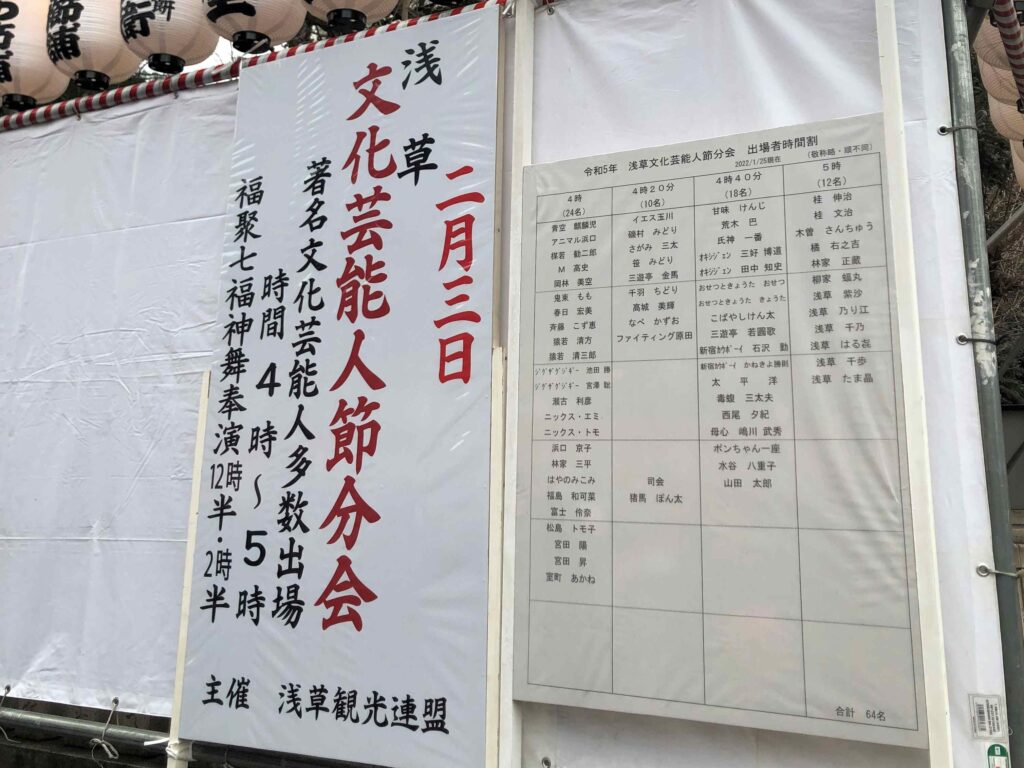 二月三日
浅草
文化芸能人節分会
著名文化芸能人多数出場
時間 4時〜5時
福聚七福神舞奉演 12時半・2時半
主催 浅草観光連盟
令和5年 浅草文化芸能人節分会 出場者時間割
2022/1/25現在 (敬称略・順不同)
4時
(24名)
青空 麒麟児
アニマル浜口
楳若 勧二郎
M 高史
岡林 美空
鬼東 もも
春日 宏美
斉藤 こず恵
猿若 清方
猿若 清三郎
ジグザグジギー 池田 勝
ジグザグジギー 宮澤 聡
瀬古 利彦
ニックス・エミ
ニックス・トモ
浜口 京子
林家 三平
はやのみこみ
福島 和可菜
富士 伶奈
松島 トモ子
宮田 陽
宮田 昇
室町 あかね
4時20分
(10名)
イエス玉川
磯村 みどり
さがみ 三太
笹 みどり
三遊亭 金馬
千羽 ちどり
高城 美輝
なべ かずお
ファイティング原田
司会
猪馬 ぽん太
4時40分
(18名)
甘味 けんじ
荒木 巴
氏神 一番
オキシジェン 三好 博道
オキシジェン 田中 知史
おせつときょうた おせつ
おせつときょうた きょうた
こばやしけん太
三遊亭 若圓歌
新宿カウボーイ 石沢 勤
新宿カウボーイ かねきよ勝則
太 平 洋
毒蝮 三太夫
西尾 夕紀
母心 嶋川 武秀
ポンちゃん一座
水谷 八重子
山田 太郎
5時
(12名)
桂 伸治
桂 文治
木曽 さんちゅう
橘 右之吉
林家 正蔵
柳家 蝠丸
浅草 紫沙
浅草 乃り江
浅草 千乃
浅草 はる㐂
浅草 千歩
浅草 たま晶
合計 64名